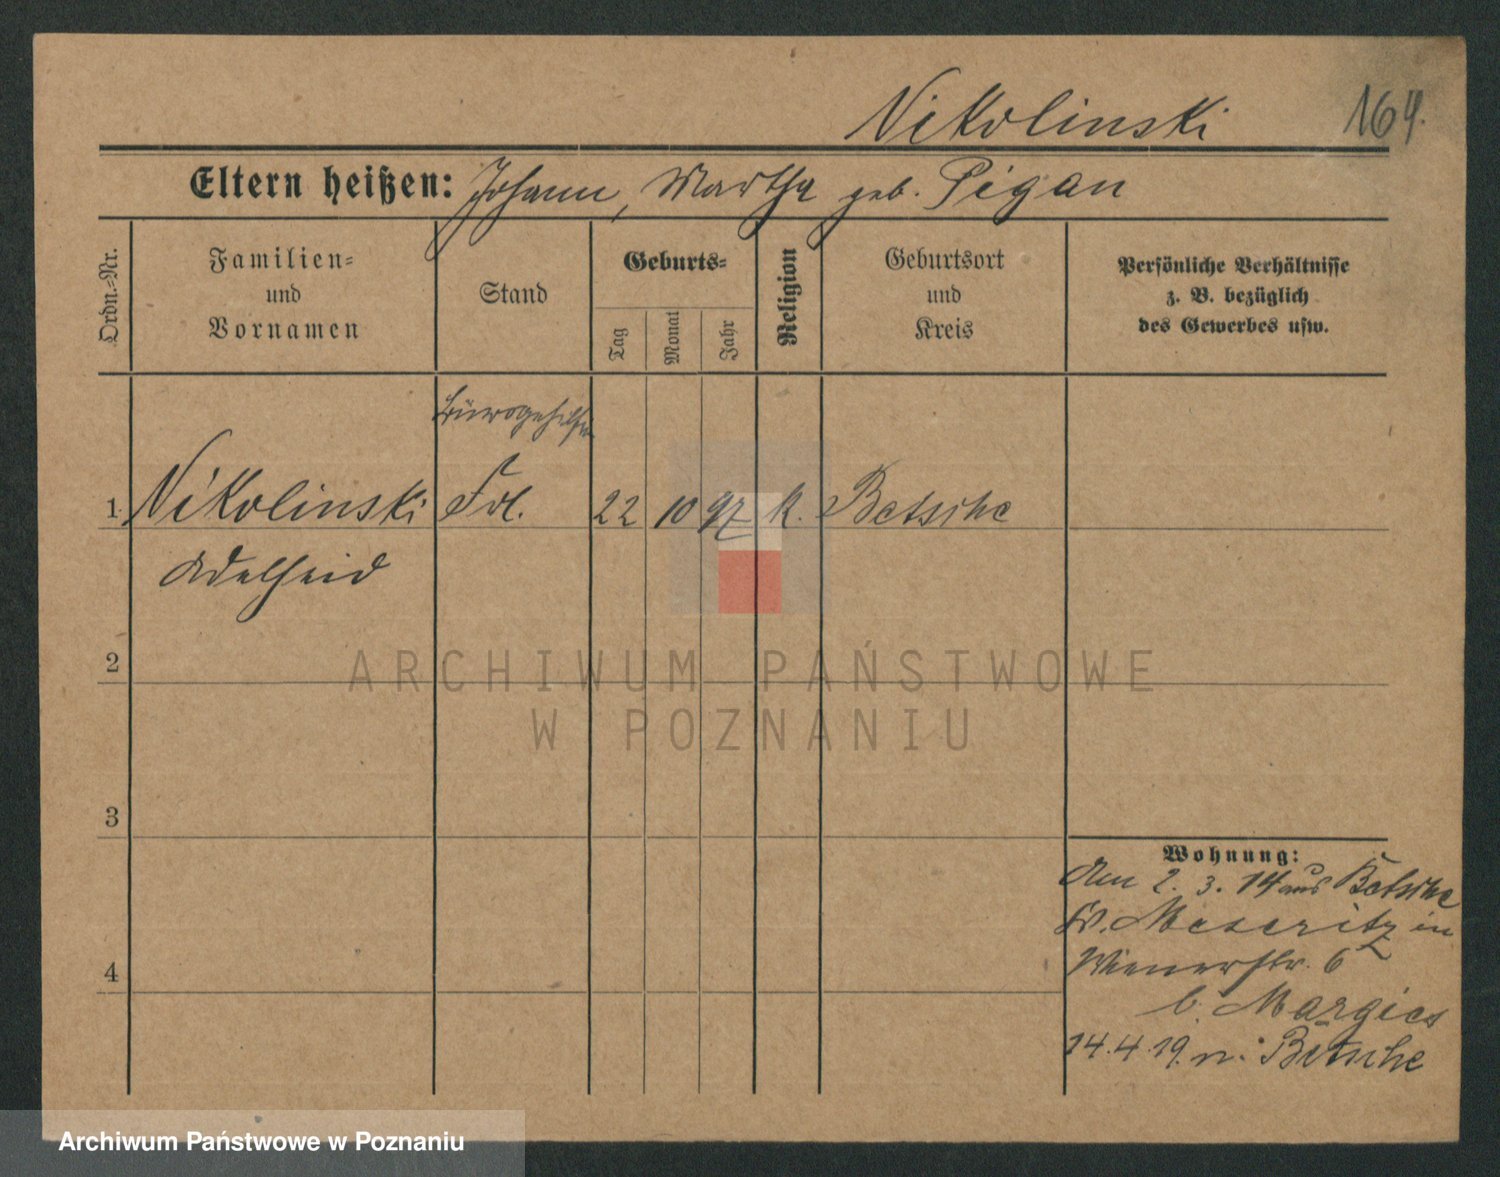 Nikolinski 164.
Eltern heißen: Johann, Martha geb. Pigan
Ordn.-Nr.
Familien-
und
Vornamen
Stand
Geburts-
Tag
Monat
Jahr
Religion
Geburtsort
und
Kreis
Persönliche Verhältnisse
z. B. bezüglich
des Gewerbes usw.
Bürogehilfin
1 Nikolinski Frl. 22 10 97 k. Betsche
Adelheid
2
3
4
Wohnung:
Am 2. 3. 14 aus Betsche
Kr. Meseritz in
Wienerstr. 6
b. Margies
14.4.19. n. Betsche
ARCHIWUM PAŃSTWOWE
W POZNANIU
Archiwum Państwowe w Poznaniu